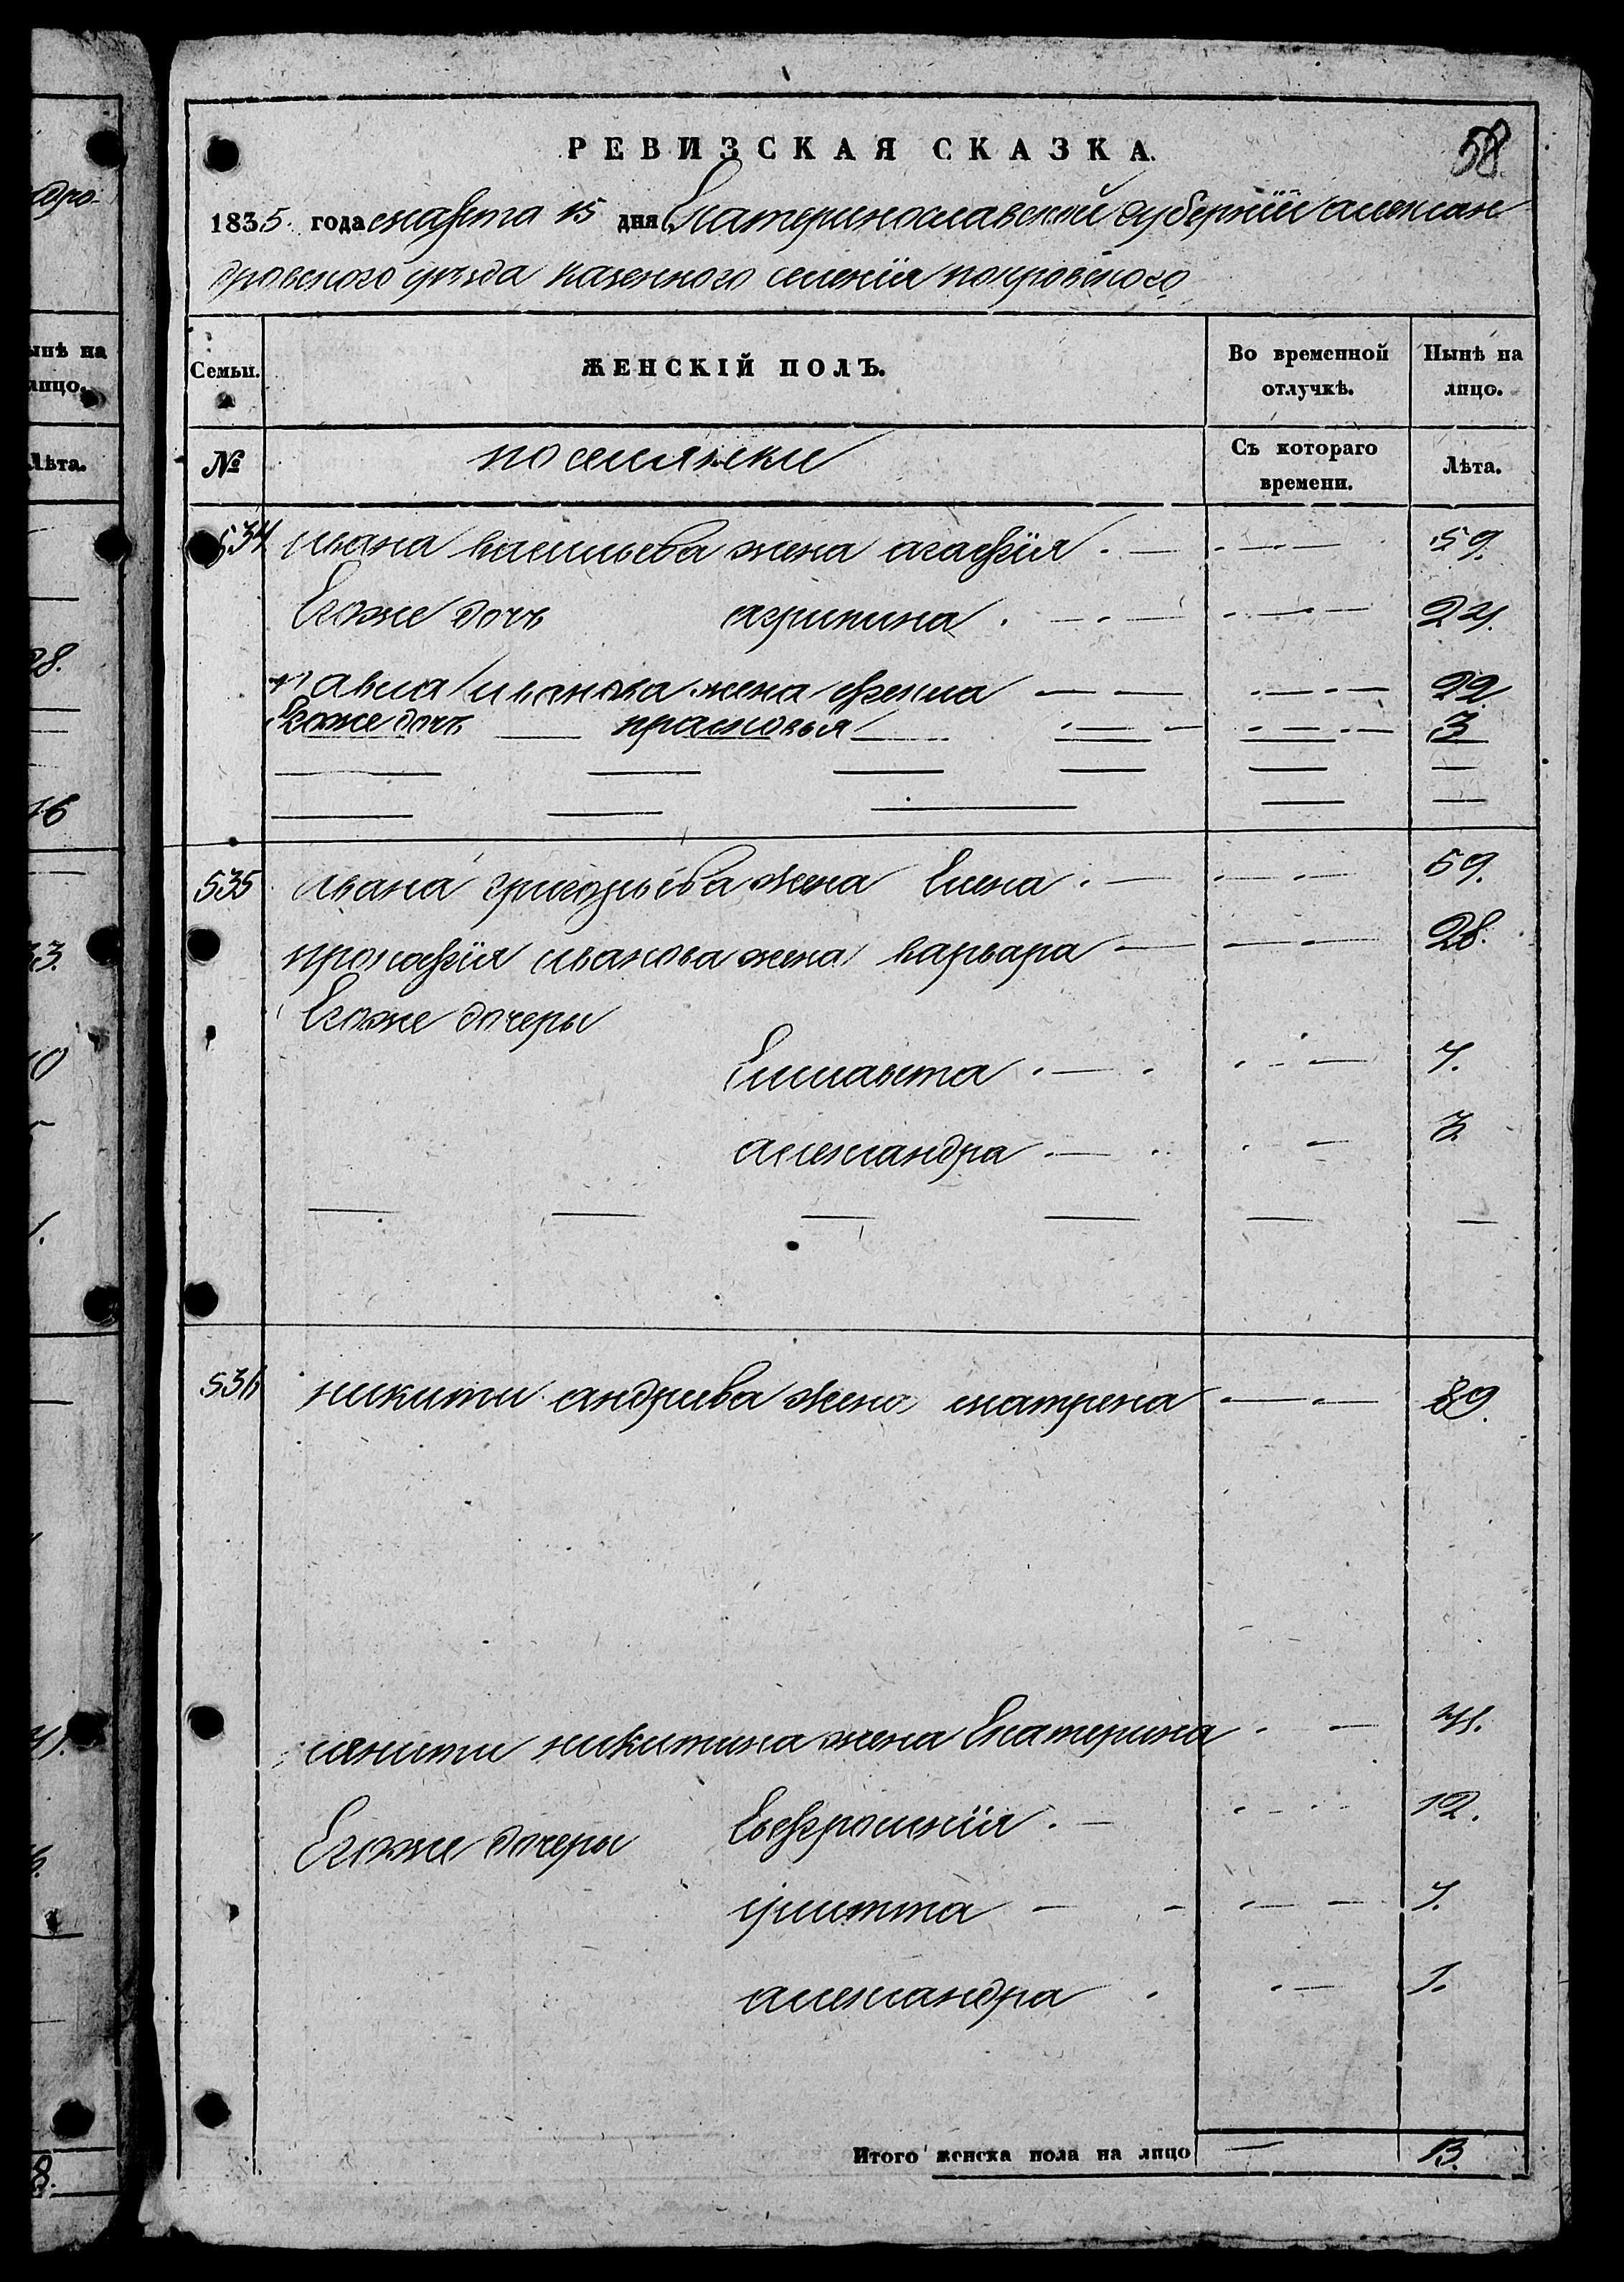 РЕВИЗСКАЯ СКАЗКА.
58
1835 года марта 15 дня Екатеринославской губернии алексан
дровского уезда казенного селения покровского
Семьи.
ЖЕНСКІЙ ПОЛЪ.
Во временной отлучкѣ.
Нынѣ на лицо.
№
поселянки
Съ котораго времени.
Лѣта.
534 ивана васильева жена агафия 59.
Егоже дочь агрипина 24.
павла иванова жена фекла 22
Егоже дочь прасковья 3
535 ивана григорьева жена Елена 59.
прокофия иванова жена варвара 28.
Егоже дочеры
7.
александра 3
536 никиты андриева жена матрена 89.
никитина жена Екатерина
Егоже дочеры Евфросиния 12.
улитта 7.
александра 1.
Итого женска пола на лицо 13.
ынѣ на
лицо.
Лѣта.
28.
16